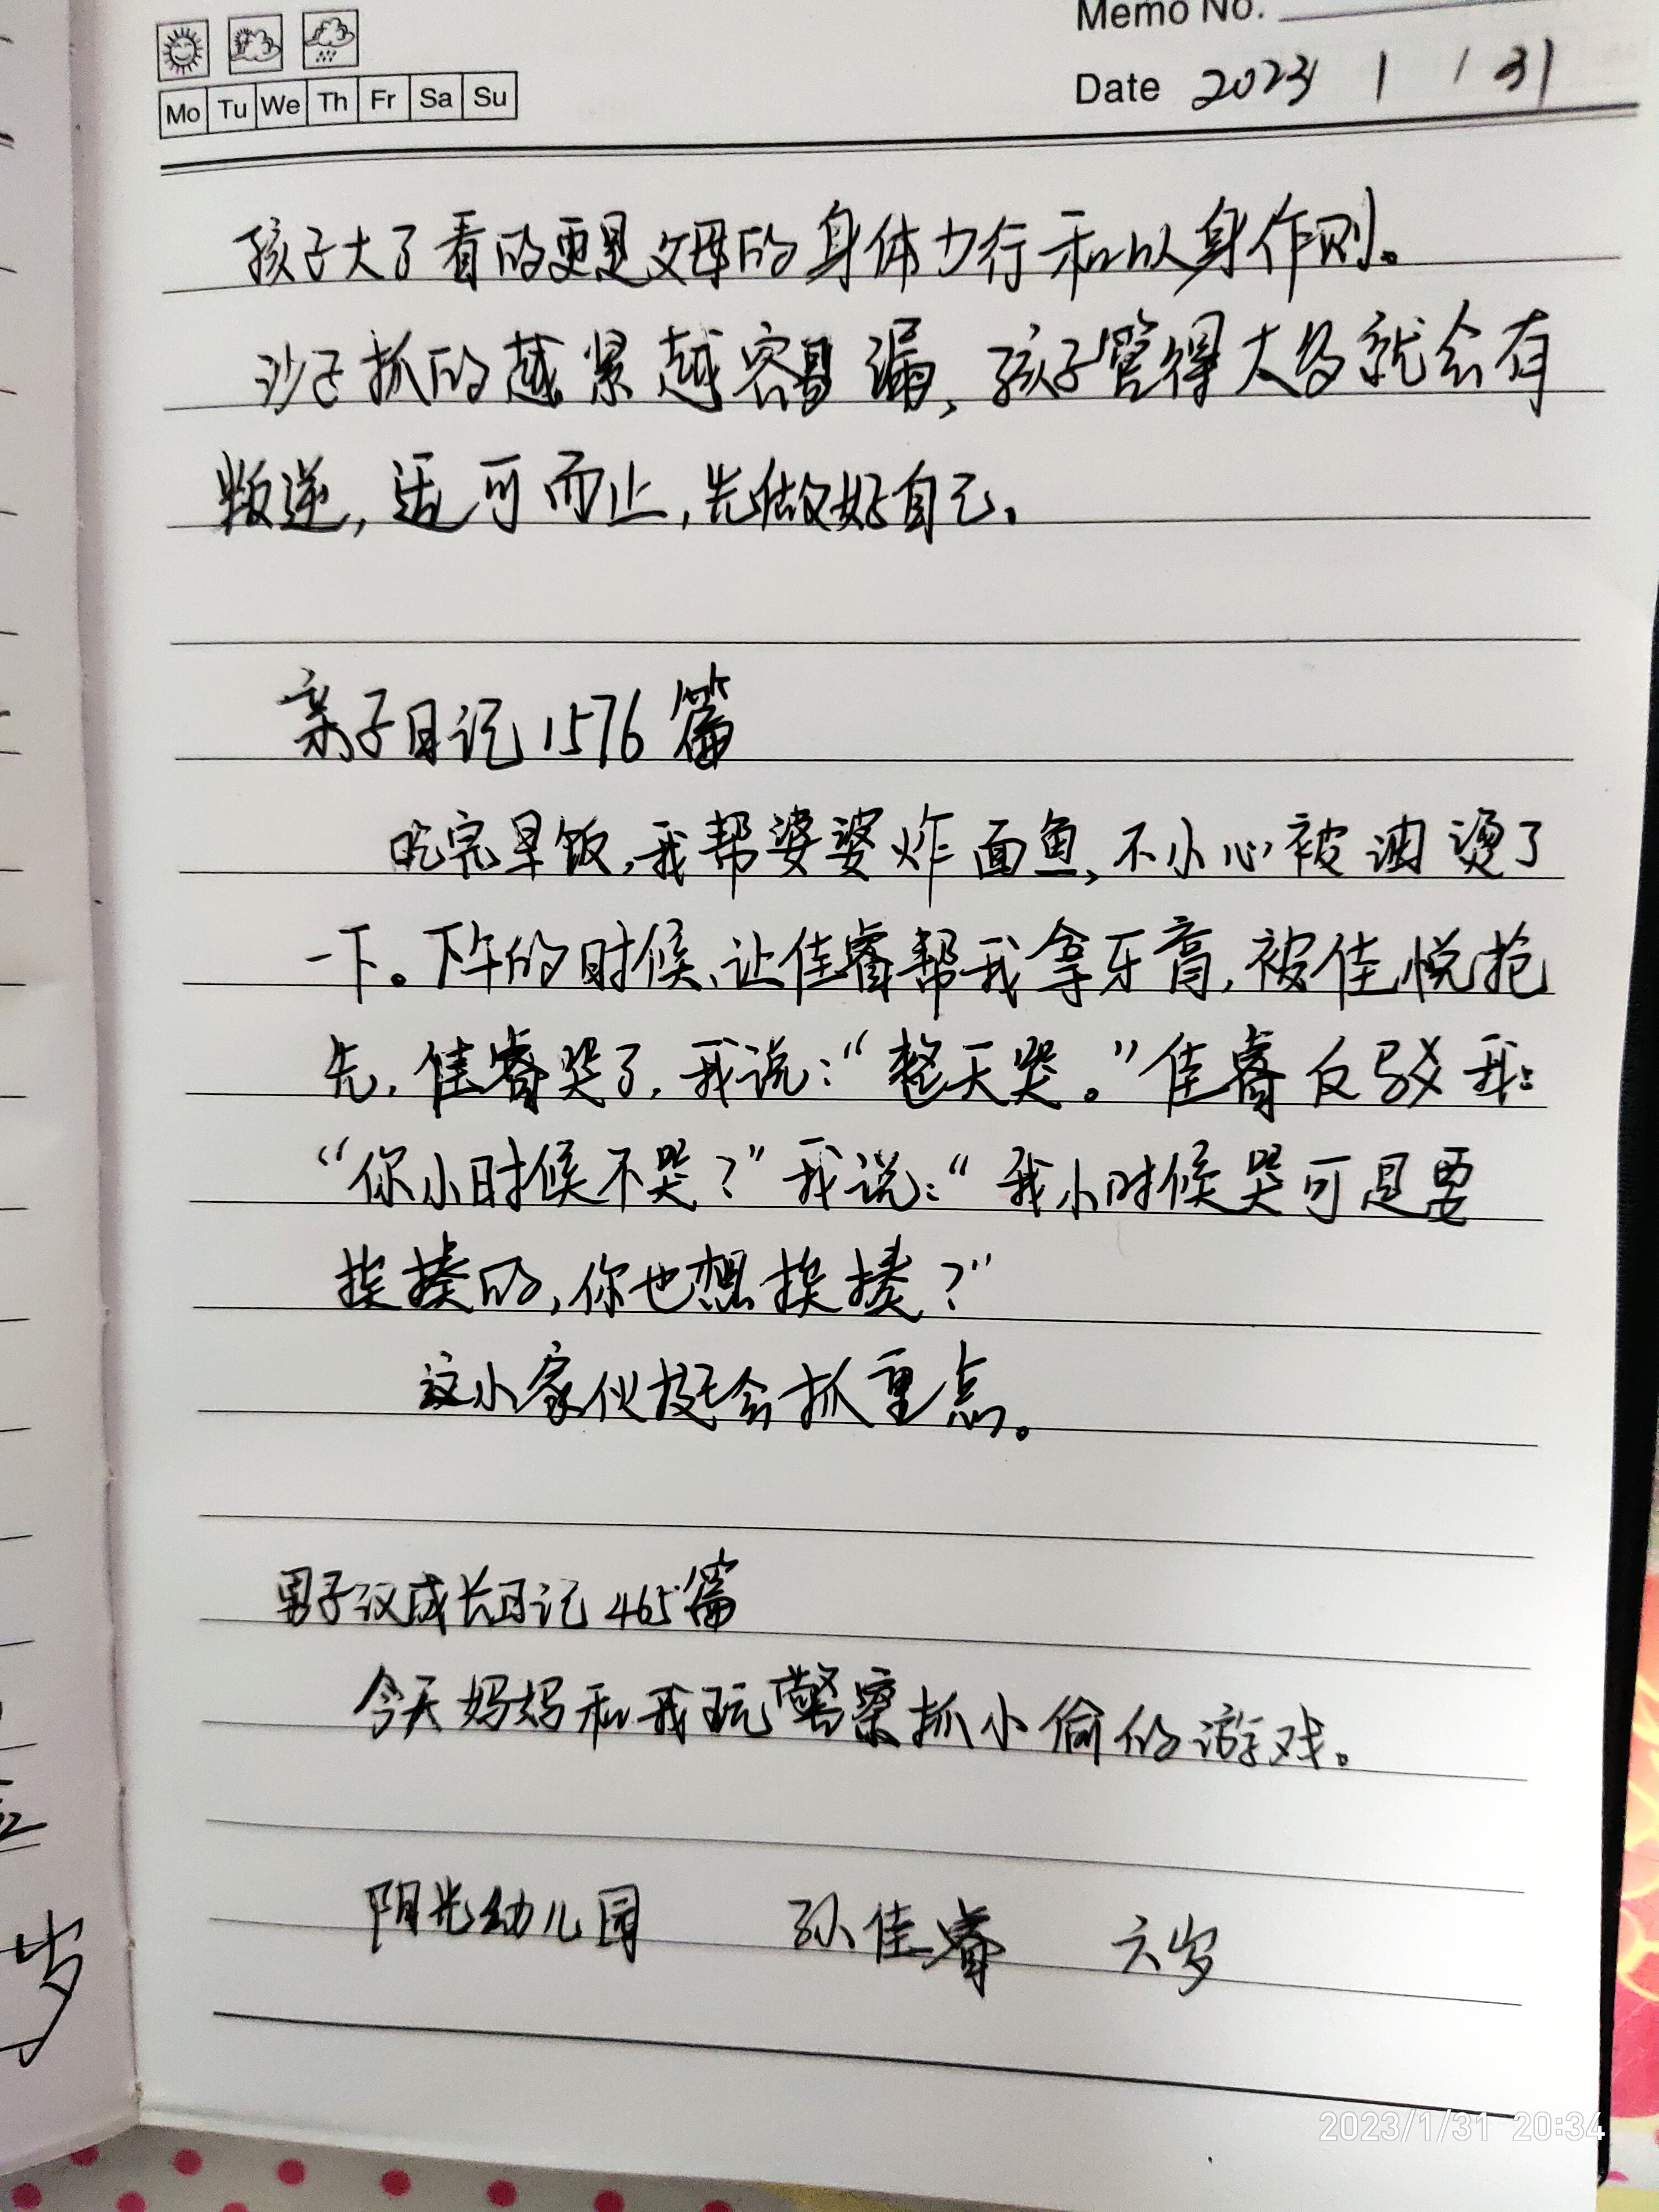 Memo No.
Mo Tu We Th Fr Sa Su
Date 2023 1 / 31
孩子大了看的更是父母的身体力行和以身作则。
沙子抓的越紧越容易漏，孩子管得太多就会有
叛逆，适可而止，先做好自己。
亲子日记1576篇
吃完早饭，我帮婆婆炸面鱼，不小心被油烫了
一下。下午的时候，让佳睿帮我拿牙膏，被佳悦抢
先，佳睿哭了，我说：“整天哭。”佳睿反驳我：
“你小时候不哭？”我说：“我小时候哭可是要
挨揍的，你也想挨揍？”
这小家伙挺会抓重点。
男子汉成长日记465篇
今天妈妈和我玩警察抓小偷的游戏。
阳光幼儿园 孙佳睿 六岁
岁
2023/1/31 20:34